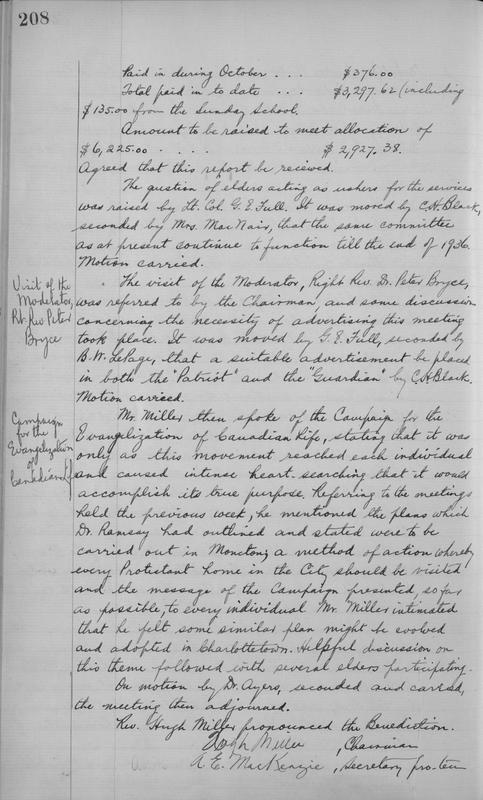 208
Paid in during October . . . $376.00
Total paid in to date . . . $3,297.62 (including
$135.00 from the Sunday School.
Amount to be raised to meet allocation of
$6,225.00 . . . . $2,927.38.
Agreed that this report be received.
The question of elders acting as ushers for the services
was raised by Lt. Col. G. E. Full. It was moved by C. H. Black,
seconded by Mrs. MacNair, that the same committee
as at present continue to function till the end of 1936.
Motion carried.
Visit of the
Moderator,
Rt. Rev Peter
Bryce
The visit of the Moderator, Right Rev. Dr. Peter Bryce,
was referred to by the Chairman, and some discussion
concerning the necessity of advertising this meeting
took place. It was moved by G. E. Full, seconded by
B. W. LePage, that a suitable advertisement be placed
in both the "Patriot" and the "Guardian" by C. H. Black.
Motion carried.
Campaign
for the
Evangelization
of
Canadian Life
Mr. Miller then spoke of the Campaign for the
Evangelization of Canadian Life, stating that it was
only as this movement reached each individual
and caused intense heart-searching that it would
accomplish its true purpose. Referring to the meetings
held the previous week, he mentioned the plans which
Dr. Ramsay had outlined and stated were to be
carried out in Moncton; a method of action whereby
every Protestant home in the City should be visited
and the message of the Campaign presented, so far
as possible, to every individual. Mr. Miller intimated
that he felt some similar plan might be evolved
and adopted in Charlottetown. Helpful discussion on
this theme followed with several elders participating.
On motion by Dr. Ayers, seconded and carried,
the meeting then adjourned.
Rev. Hugh Miller pronounced the Benediction.
Hugh Miller, Chairman
A. E. MacKenzie, Secretary pro-tem